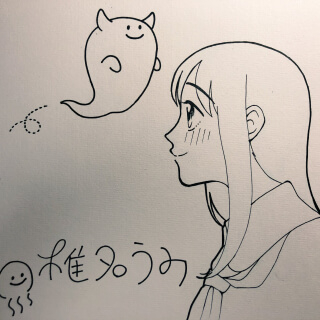 椎名うみ